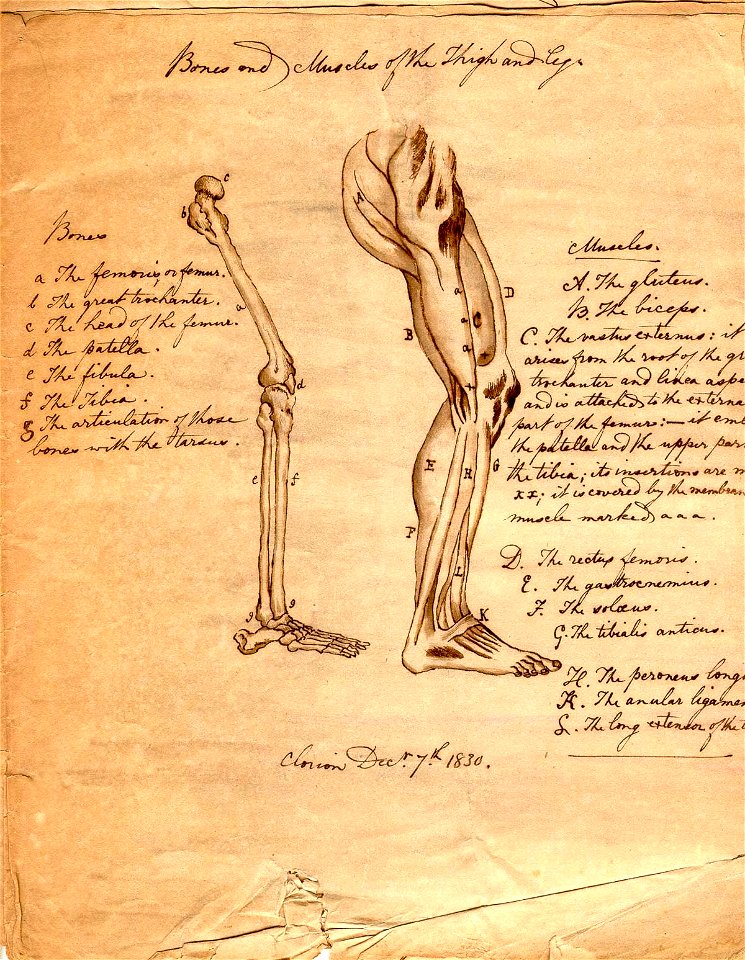 Bones and Muscles of the Thigh and Leg.
Bones
a The femoris, or femur.
b The great trochanter.
c The head of the femur.
d The patella.
e The fibula.
f The Tibia.
g The articulation of those
bones with the tarsus.
Muscles.
A. The gluteus.
B. The biceps.
C. The vastus externus: it
arises from the root of the gr
trochanter and linea aspe
and is attached to the externa
part of the femur:— it em
the patella and the upper par
the tibia; its insertions are m
xx; it is covered by the membran
muscle marked a a a.
D. The rectus femoris.
E. The gastrocnemius.
F. The solæus.
G. The tibialis anticus.
H. The peroneus long
K. The anular ligame
L. The long extensor of the
c
b
a
d
e
f
g
g
A
B
C
D
a
a
a
x
x
E
F
G
H
L
K
Decr. 7th 1830.